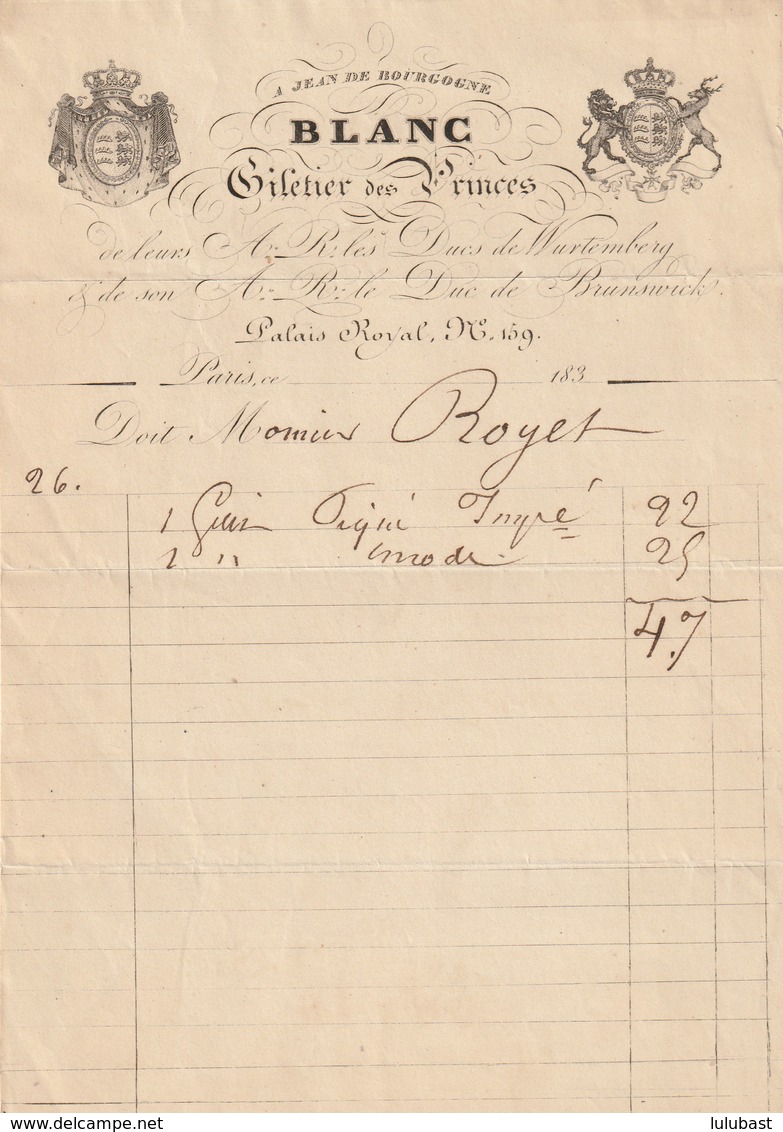 A JEAN DE BOURGOGNE
BLANC
Giletier des Princes
de leurs A. R. les Ducs de Wurtemberg
& de son A. R. le Duc de Brunswick.
Palais Royal, No. 159.
Paris, ce 183
Doit Monsieur Royet
26.
1 Piqué Imprée 22
1 " mode 25
47
delcampe.net
lulubast